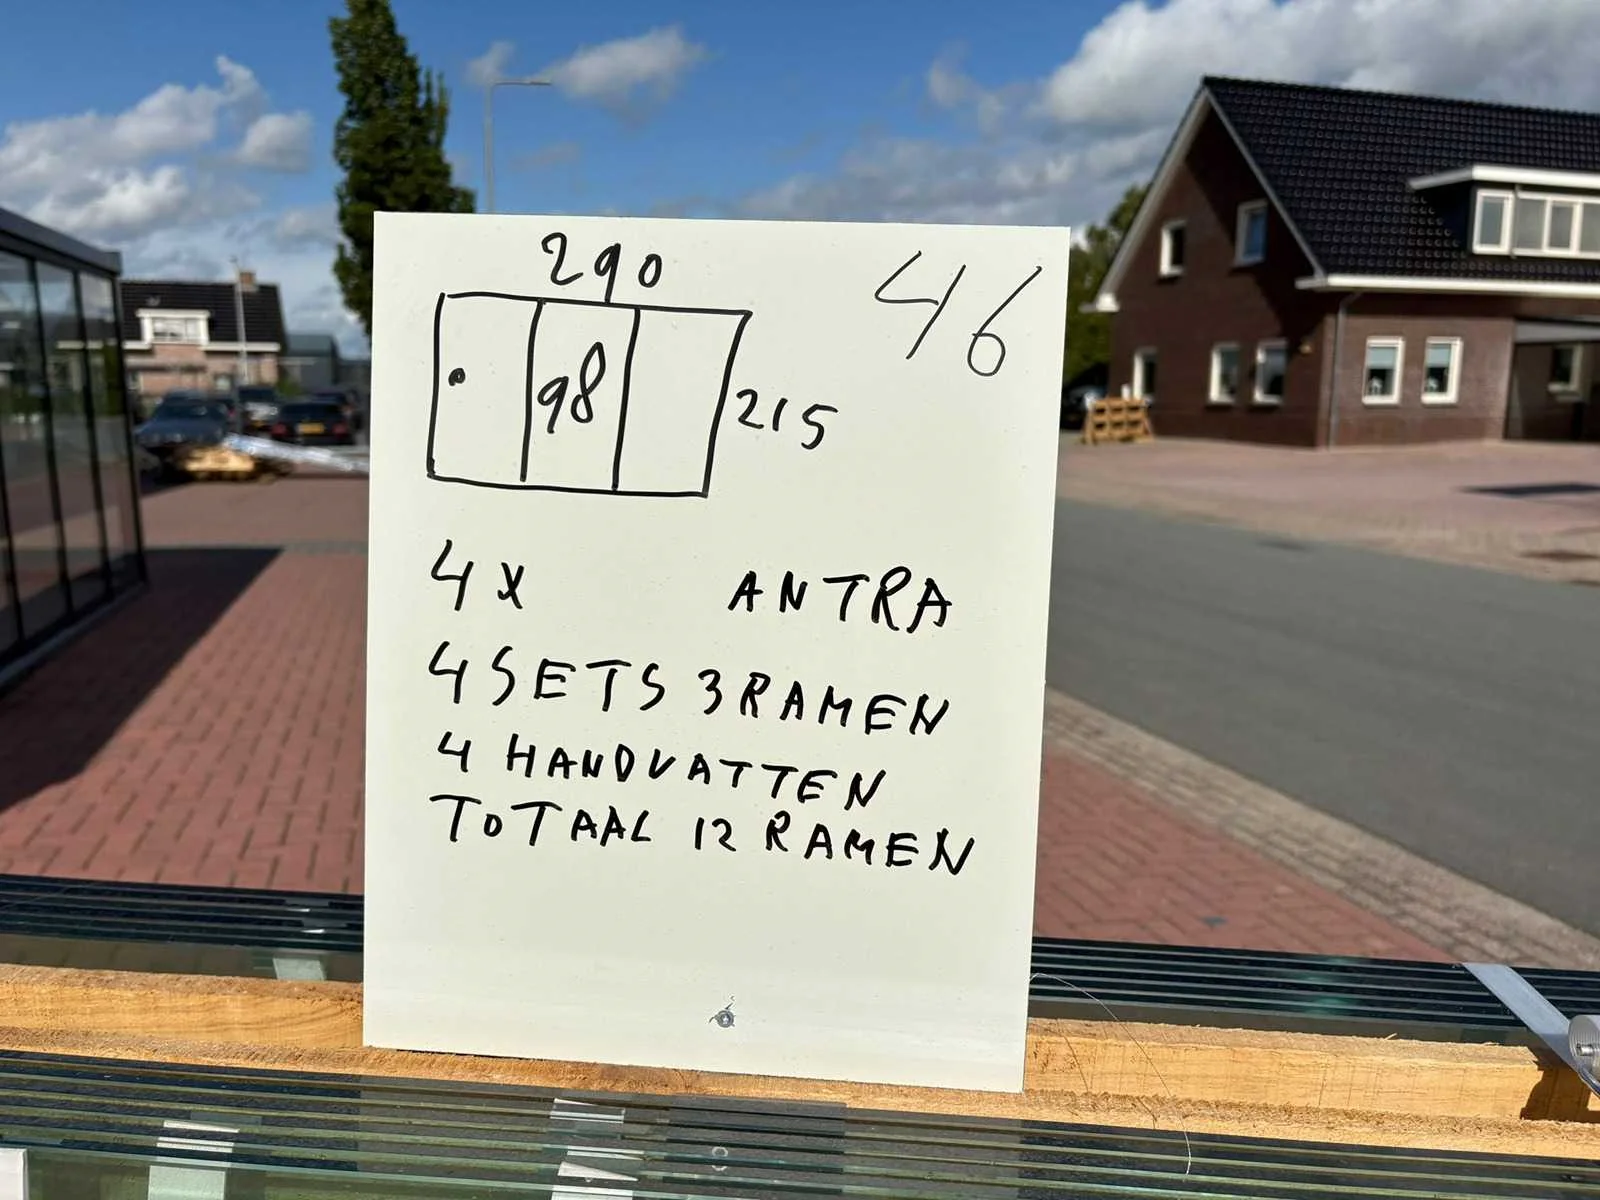 290
46
98
215
4X ANTRA
4 SETS 3 RAMEN
4 HANDVATTEN
TOTAAL 12 RAMEN